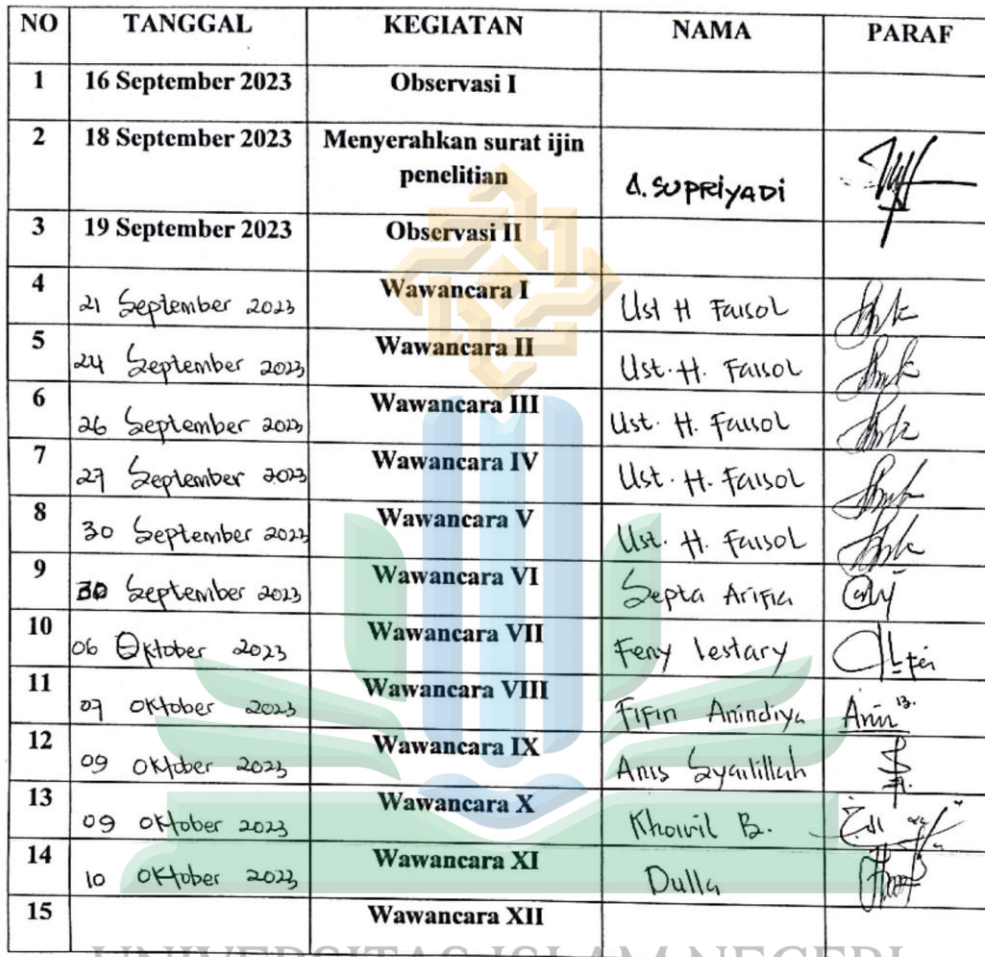 NO TANGGAL KEGIATAN NAMA PARAF
1 16 September 2023 Observasi I
2 18 September 2023 Menyerahkan surat ijin
penelitian A. SUPRIYADI
3 19 September 2023 Observasi II
4 21 September 2023 Wawancara I Ust H Faisol
5 24 September 2023 Wawancara II Ust. H. Faisol
6 26 September 2023 Wawancara III Ust. H. Faisol
7 27 September 2023 Wawancara IV Ust. H. Faisol
8 30 September 2023 Wawancara V Ust. H. Faisol
9 30 September 2023 Wawancara VI Septa Arifia
10 06 Oktober 2023 Wawancara VII Feny lestary
11 07 Oktober 2023 Wawancara VIII Fifin Anindiya Anin
12 09 Oktober 2023 Wawancara IX Anis
13 09 Oktober 2023 Wawancara X B.
14 10 Oktober 2023 Wawancara XI Dulla
15 Wawancara XII
UNIVERSITAS ISLAM NEGERI